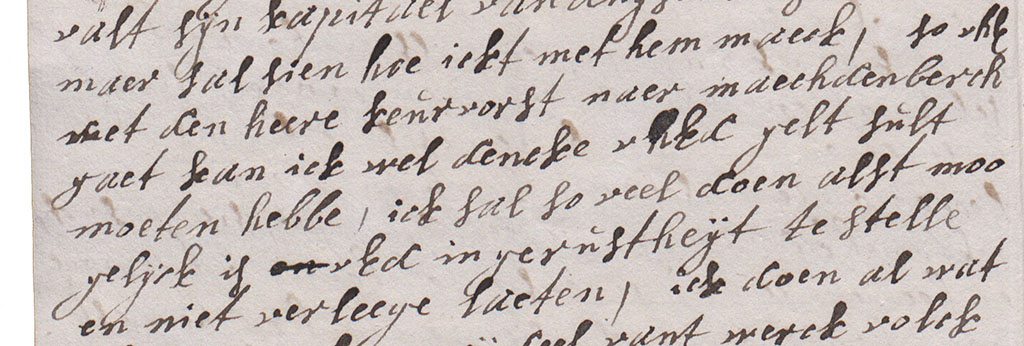 valt sijn kapitael van
maer sal sien hoe ickt met hem maeck, so
met den heere keurvorst naer maechdenberch
gaet kan ick wel dencke vked gelt sult
moeten hebbe, ick sal so veel doen alst moo
gelijck is vked in gerustheijt te stelle
en niet verleege laeten, ick doen al wat
deel vant werck volck